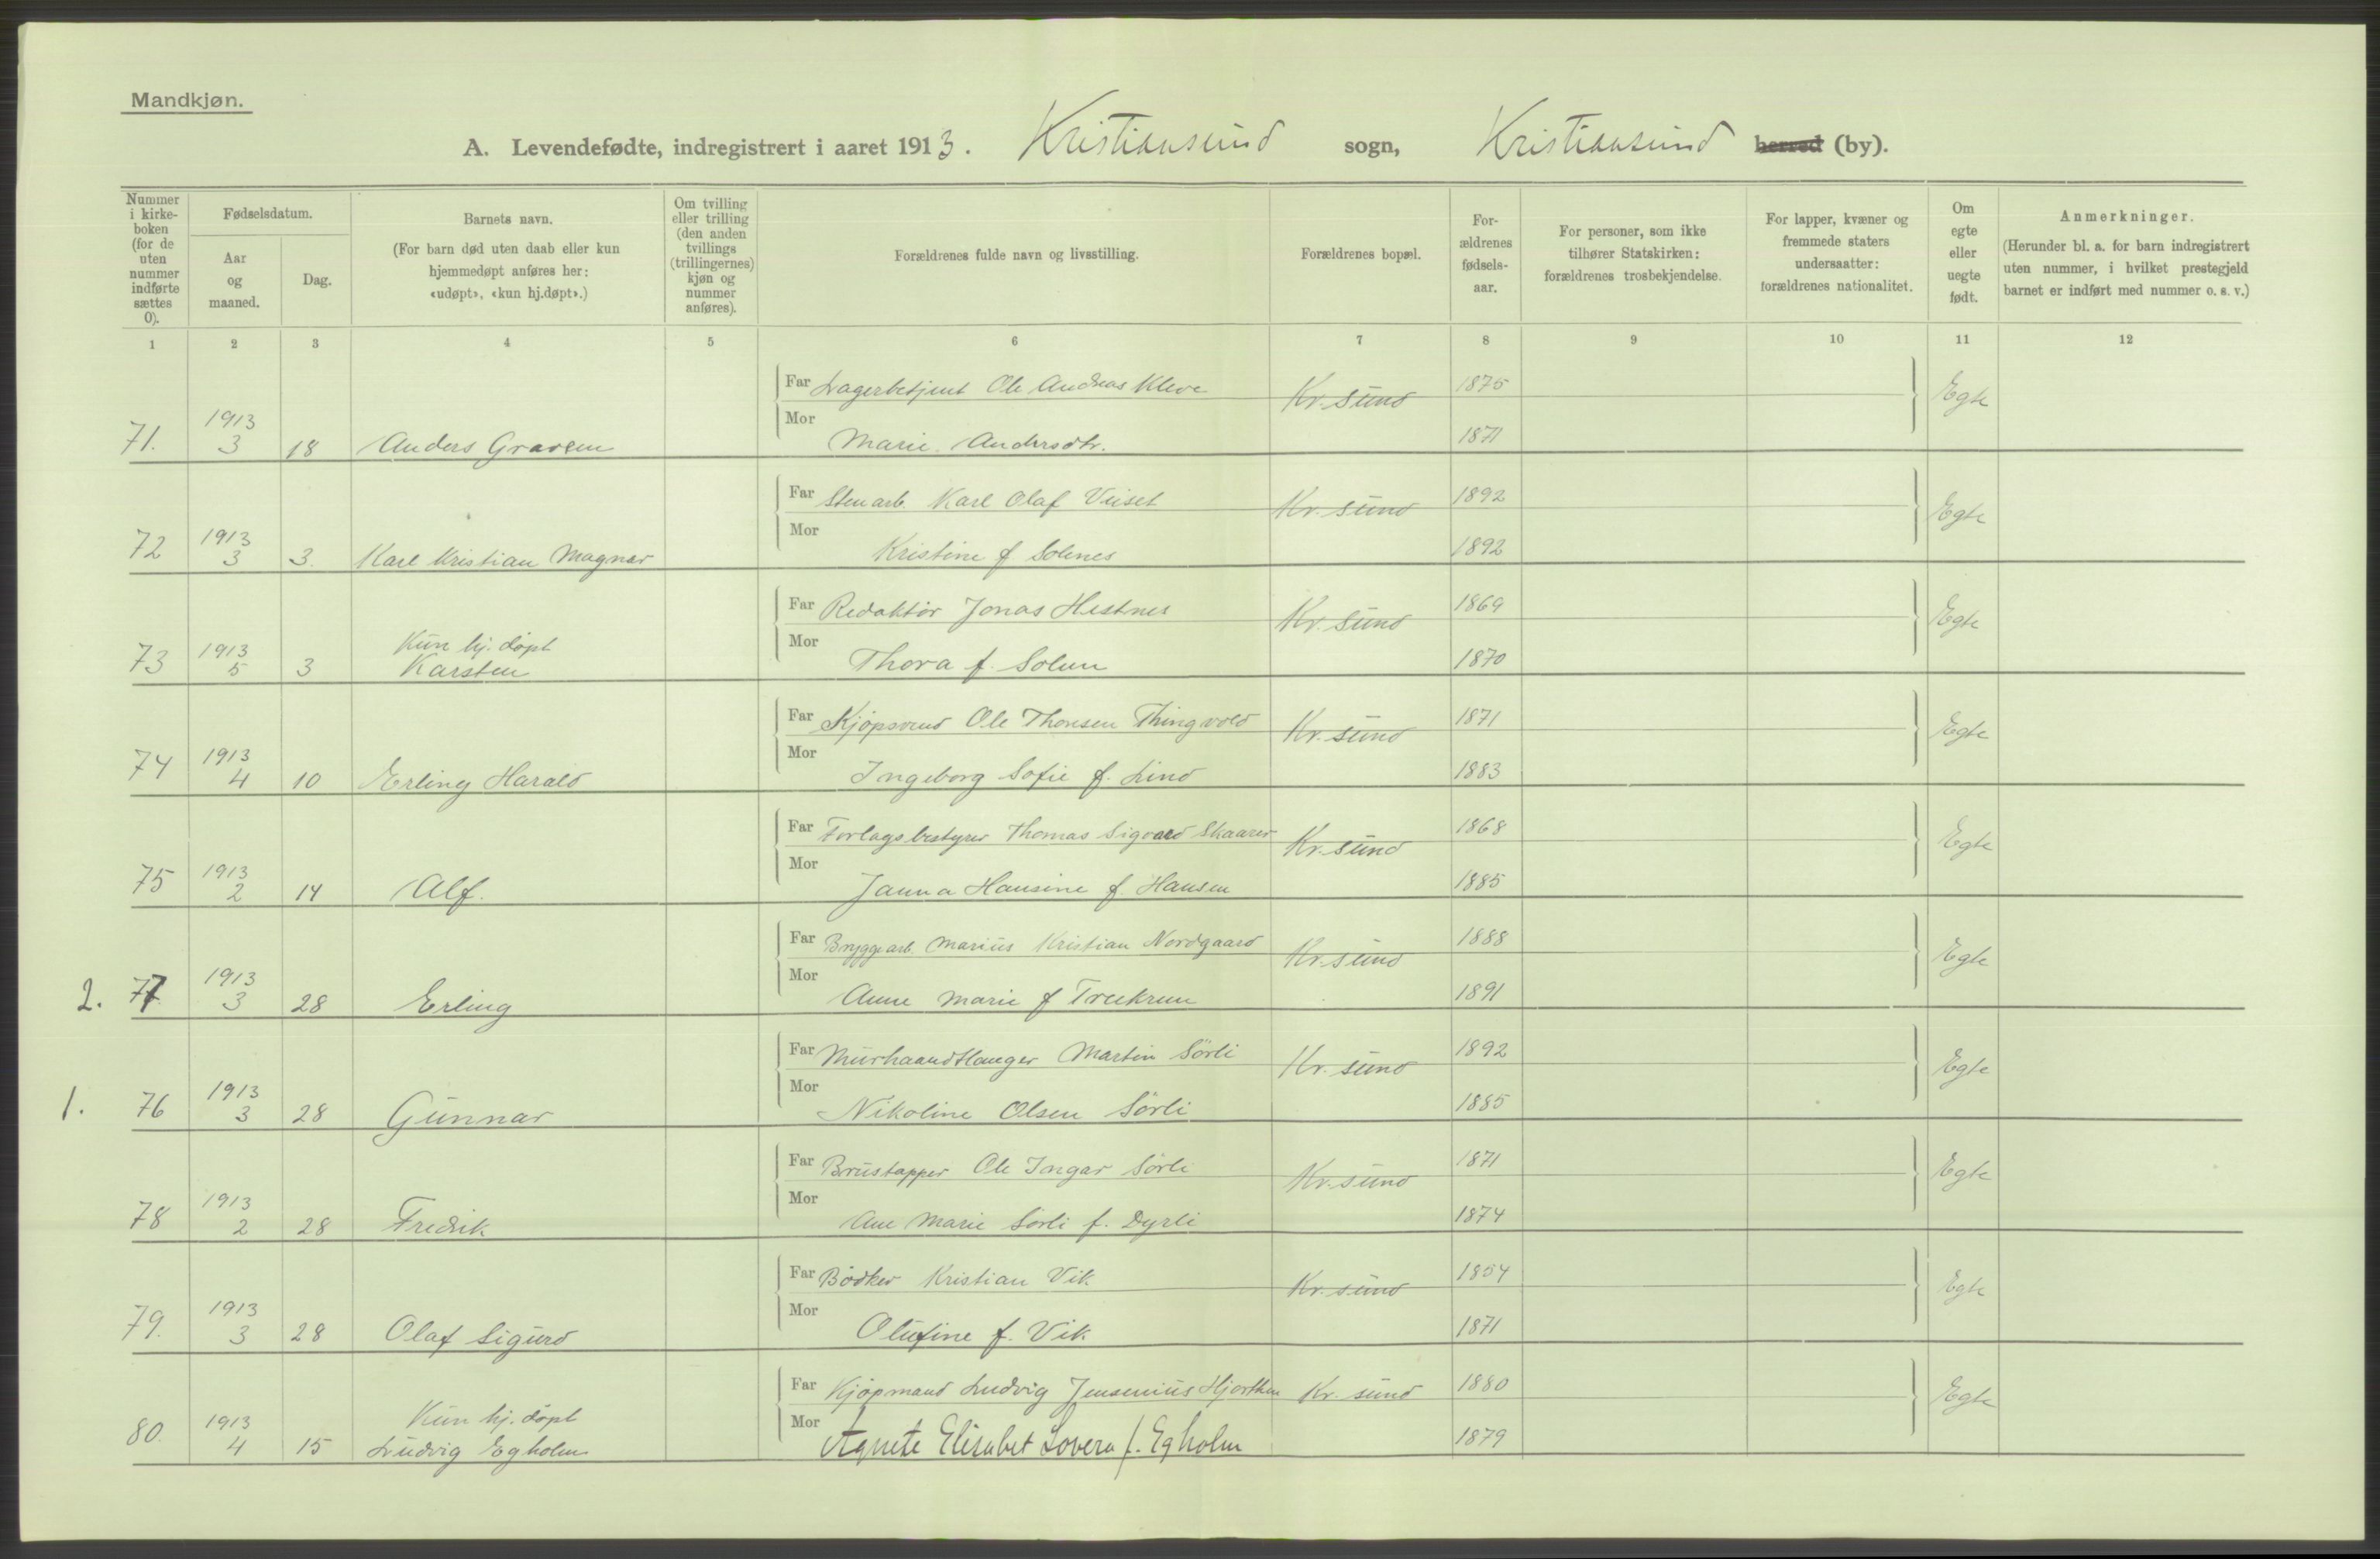 Mandkjøn.
A. Levendefødte, indregistrert i aaret 1913. Kristiansund sogn, Kristiansund herred (by).
Nummer i kirkeboken (for de uten nummer indførte sættes 0).
Fødselsdatum.
Aar og maaned.
Dag.
Barnets navn.
(For barn død uten daab eller kun hjemmedøpt anføres her: «udøpt», «kun hj.døpt».)
Om tvilling eller trilling (den anden tvillings (trillingernes) kjøn og nummer anføres).
Forældrenes fulde navn og livsstilling.
Forældrenes bopæl.
Forældrenes fødselsaar.
For personer, som ikke tilhører Statskirken: forældrenes trosbekjendelse.
For lapper, kvæner og fremmede staters undersaatter: forældrenes nationalitet.
Om egte eller uegte født.
Anmerkninger.
(Herunder bl. a. for barn indregistrert uten nummer, i hvilket prestegjeld barnet er indført med nummer o. s. v.)
1 2 3 4 5 6 7 8 9 10 11 12
Far Lagerbetjent Ole Andreas Kleve Kr.sund 1875 Egte
71. 1913 3 18 Anders Gravem Mor Marie Andersdtr. 1871
Far Stenarb. Karl Olaf Veiset Kr.sund 1892 Egte
72 1913 3 3. Karl Kristian Magnar Mor Kristine f Solenes 1892
Far Redaktør Jonas Hestnes Kr.sund 1869 Egte
Kun hj. døpt
73 1913 5 3 Karsten Mor Thora f. Solem 1870
Far Kjøpmand Ole Thoresen Thingvold Kr.sund 1871 Egte
74 1913 4 10 Erling Harald Mor Ingeborg Sofie f. Lind 1883
Far Forlagsbestyrer Thomas Sigvard Skaarer Kr.sund 1868 Egte
75 1913 2 14 Alf. Mor Janna Hansine f. Hansen 1885
Far Bryggearb. Marius Kristian Nordgaard Kr.sund 1888 Egte
2. 77 1913 3 28 Erling Mor Anne Marie f 1891
Far Murhaandtlanger Martin Sörli Kr.sund 1892 Egte
1. 76 1913 3 28 Gunnar Mor Nikoline Olsen Sörli 1885
Far Brustapper Ole Ingar Sörli Kr.sund 1871 Egte
78 1913 2 28 Fredrik Mor Ane Marie Sörli f. Dyrli 1874
Far Bödker Kristian Vik Kr.sund 1854 Egte
79. 1913 3 28 Olaf Sigurd Mor Olufine f. Vik 1871
Far Kjøpmand Ludvig Jensenius Hjorthen Kr. sund 1880 Egte
Kun hj. døpt
80. 1913 4 15 Ludvig Egholm Mor Agnete Elisabet Lovera f. Egholm 1879